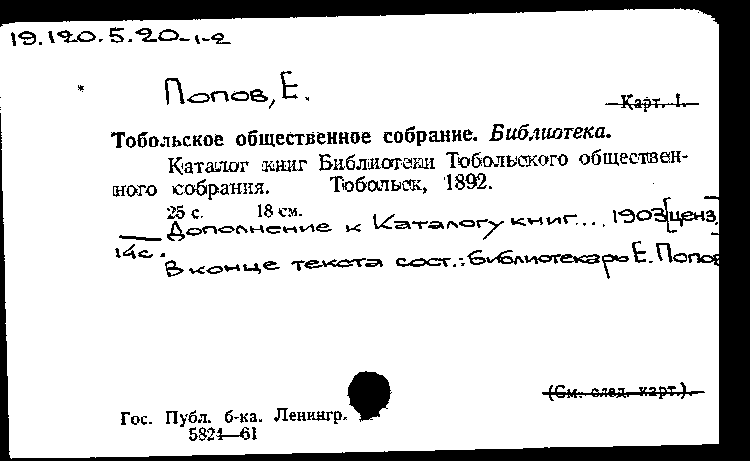 19.120.5.20-1-2
* Попов, Е.
Карт. 1.
Тобольское общественное собрание. Библиотека.
Каталог книг Библиотеки Тобольского обществен-
ного собрания. Тобольск, 1892.
25 с. 18 см.
Дополнение к Каталогу книг... 1903 [ценз.
14с.
В конце текста сост.: библиотекарь Е. Попов
(См. след. карт.).
Гос. Публ. б-ка. Ленингр.
5824—61